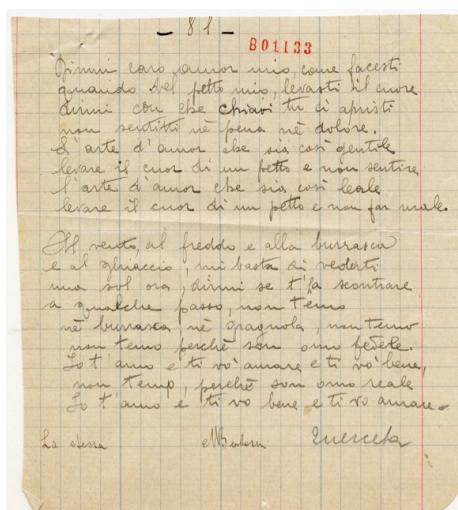 - 81 -
B01133
Dimmi caro amor mio, come facesti
quando dal petto mio, levasti il cuore
dimmi con che chiavi tu ci apristi
non sentitti nè pena nè dolore.
L'arte d'amor che sia così gentile
levare il cuor di un petto e non sentire,
l'arte d'amor che sia così leale
levare il cuor di un petto e non far male.
Al vento, al freddo e alla burrasca
e al ghiaccio, mi basta di vederti
una sol ora, dirmi se t'fa scontrare
a qualche passo, non temo
nè burrasca, nè spagnola, non temo
non temo perchè son omo fedele.
Io t'amo e ti vo' amare e ti vo' bene,
non temo, perchè son omo reale
Io t'amo e ti vo bene e ti vo amare.
La stessa Querceta